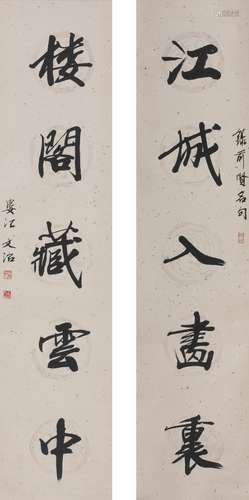 江城入畫裏
錄前賢名句
楼閣藏雲中
婁江文治